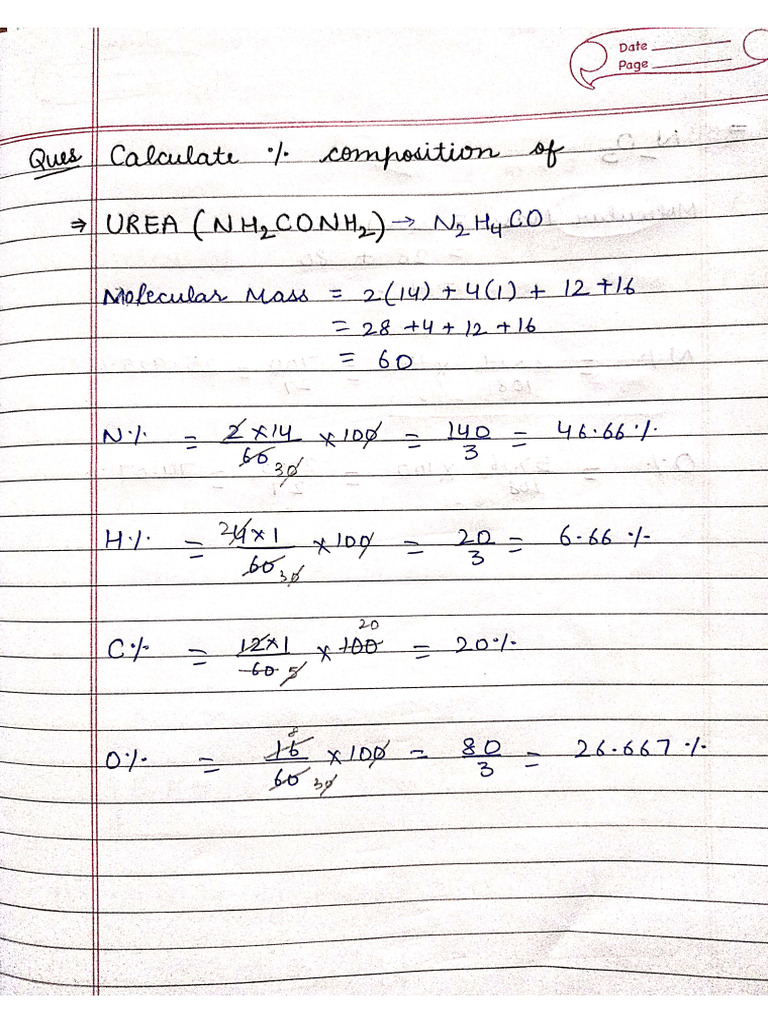 Date
Page
Ques Calculate % composition of
⇒ UREA (NH₂CONH₂) → N₂H₄CO
Molecular Mass = 2(14) + 4(1) + 12 + 16
= 28 + 4 + 12 + 16
= 60
N% = 2×14/60 30 × 100 = 140/3 = 46.66%
H% = 2 4×1/60 30 × 100 = 20/3 = 6.66 %
C% = 12×1/60 5 × 100 20 = 20%
O% = 8 16/60 30 × 100 = 80/3 = 26.667 %